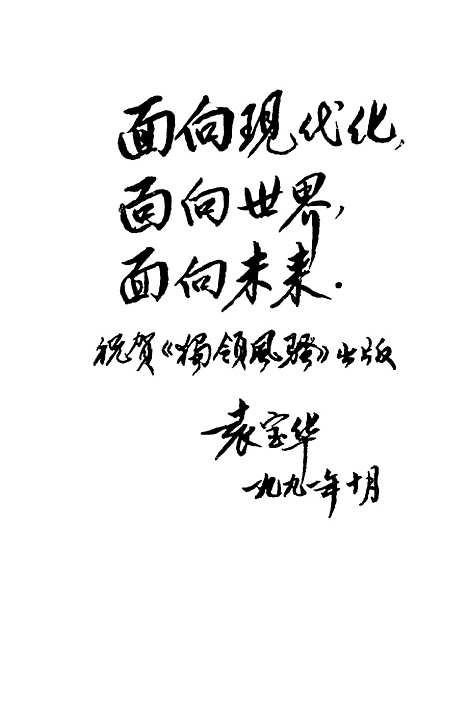 面向现代化,
面向世界,
面向未来.
祝贺《獨领風骚》出版
袁宝华
一九九一年十月